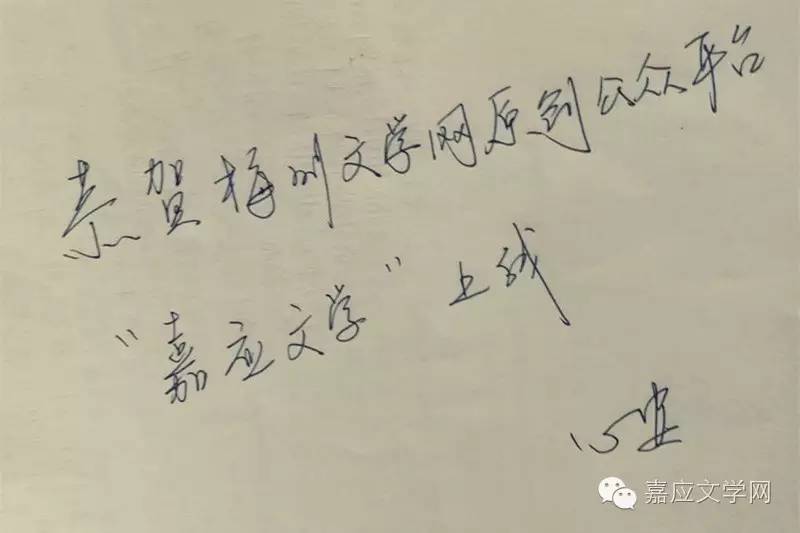 恭贺梅州文学网原创公众平台
“嘉应文学”上线
心
嘉应文学网